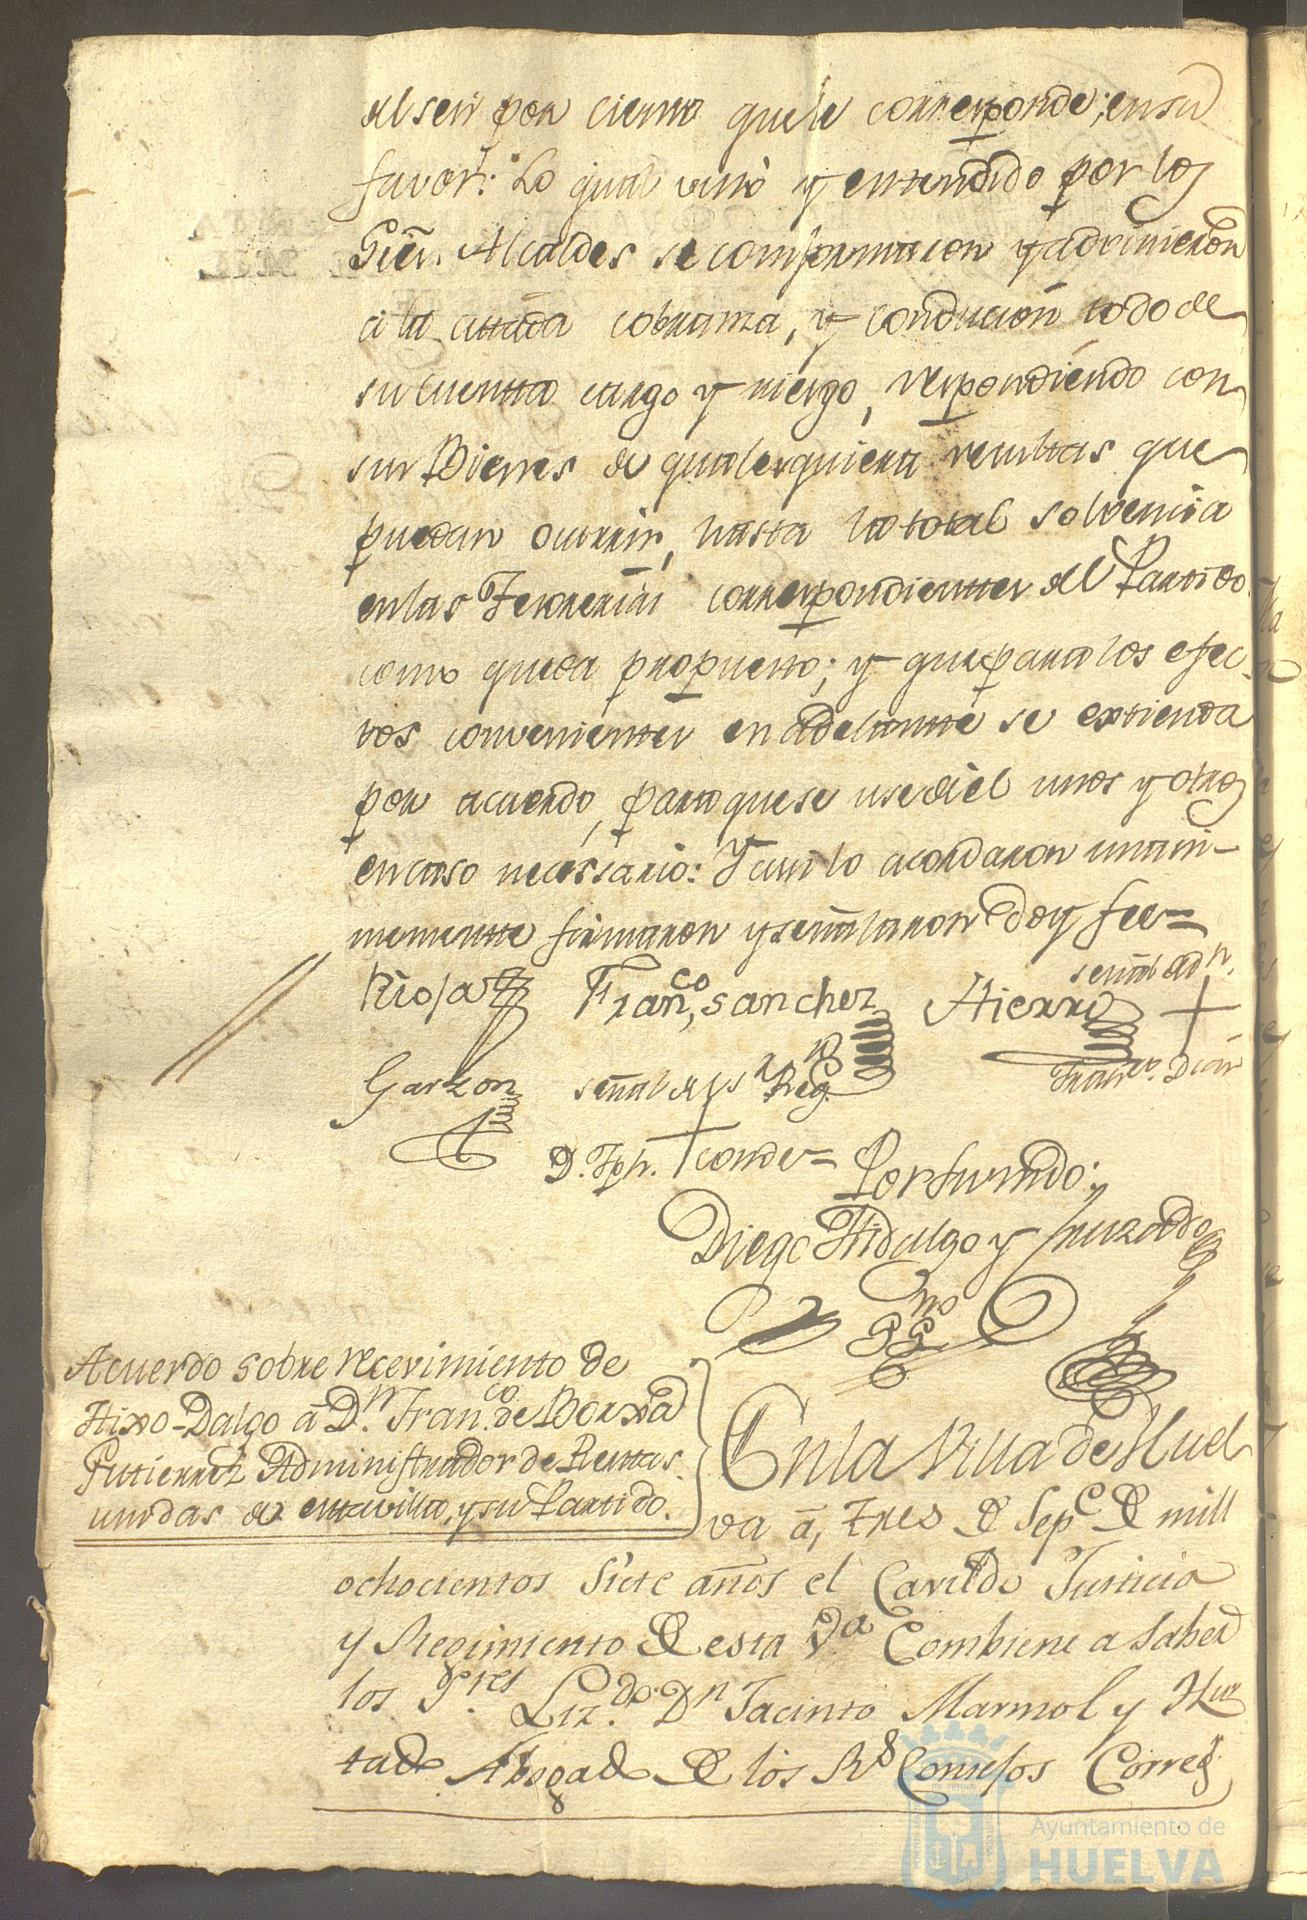 del seis por ciento que le corresponde; en su
favor: Lo qual visto y entendido por los
Sres. Alcaldes se conformaron y advinieron
a la citada cobranza, y conducion todo de
su cuenta cargo y riesgo, respondiendo con
sus Bienes de qualesquiera resultas que
puedan ocurrir, hasta la total solvencia
en las Tesorerias correspondientes del Partido
como queda propuesto; y que para los efec-
tos convenientes en adelante se extienda
por acuerdo, para que se use de él unos y otros
en caso necesario: Y así lo acordaron unani-
memente firmaron y señalaron doy fee=
Rioja Franco. Sanchez Hierro señal de Dn.
Garzon señal del Sr. Regr. Franco. Diaz
D. Jph. Conde=
Por su mdo.
Diego Hidalgo y
Acuerdo sobre recevimiento de
Hixo-Dalgo á Dn. Franco. de Borxa
Gutierrez Administrador de Rentas
unidas de esta villa, y su Partido.
En la Villa de Huel
va á, tres de Sepe. de mill
ochocientos Siete años el Cavildo Justicia
y Regimiento de esta Va. Combiene a saber
los Sres. Lizdo. Dn Jacinto Marmol y Hur
tado Abogado de los Rs Consejos Correg.
Ayuntamiento de
HUELVA